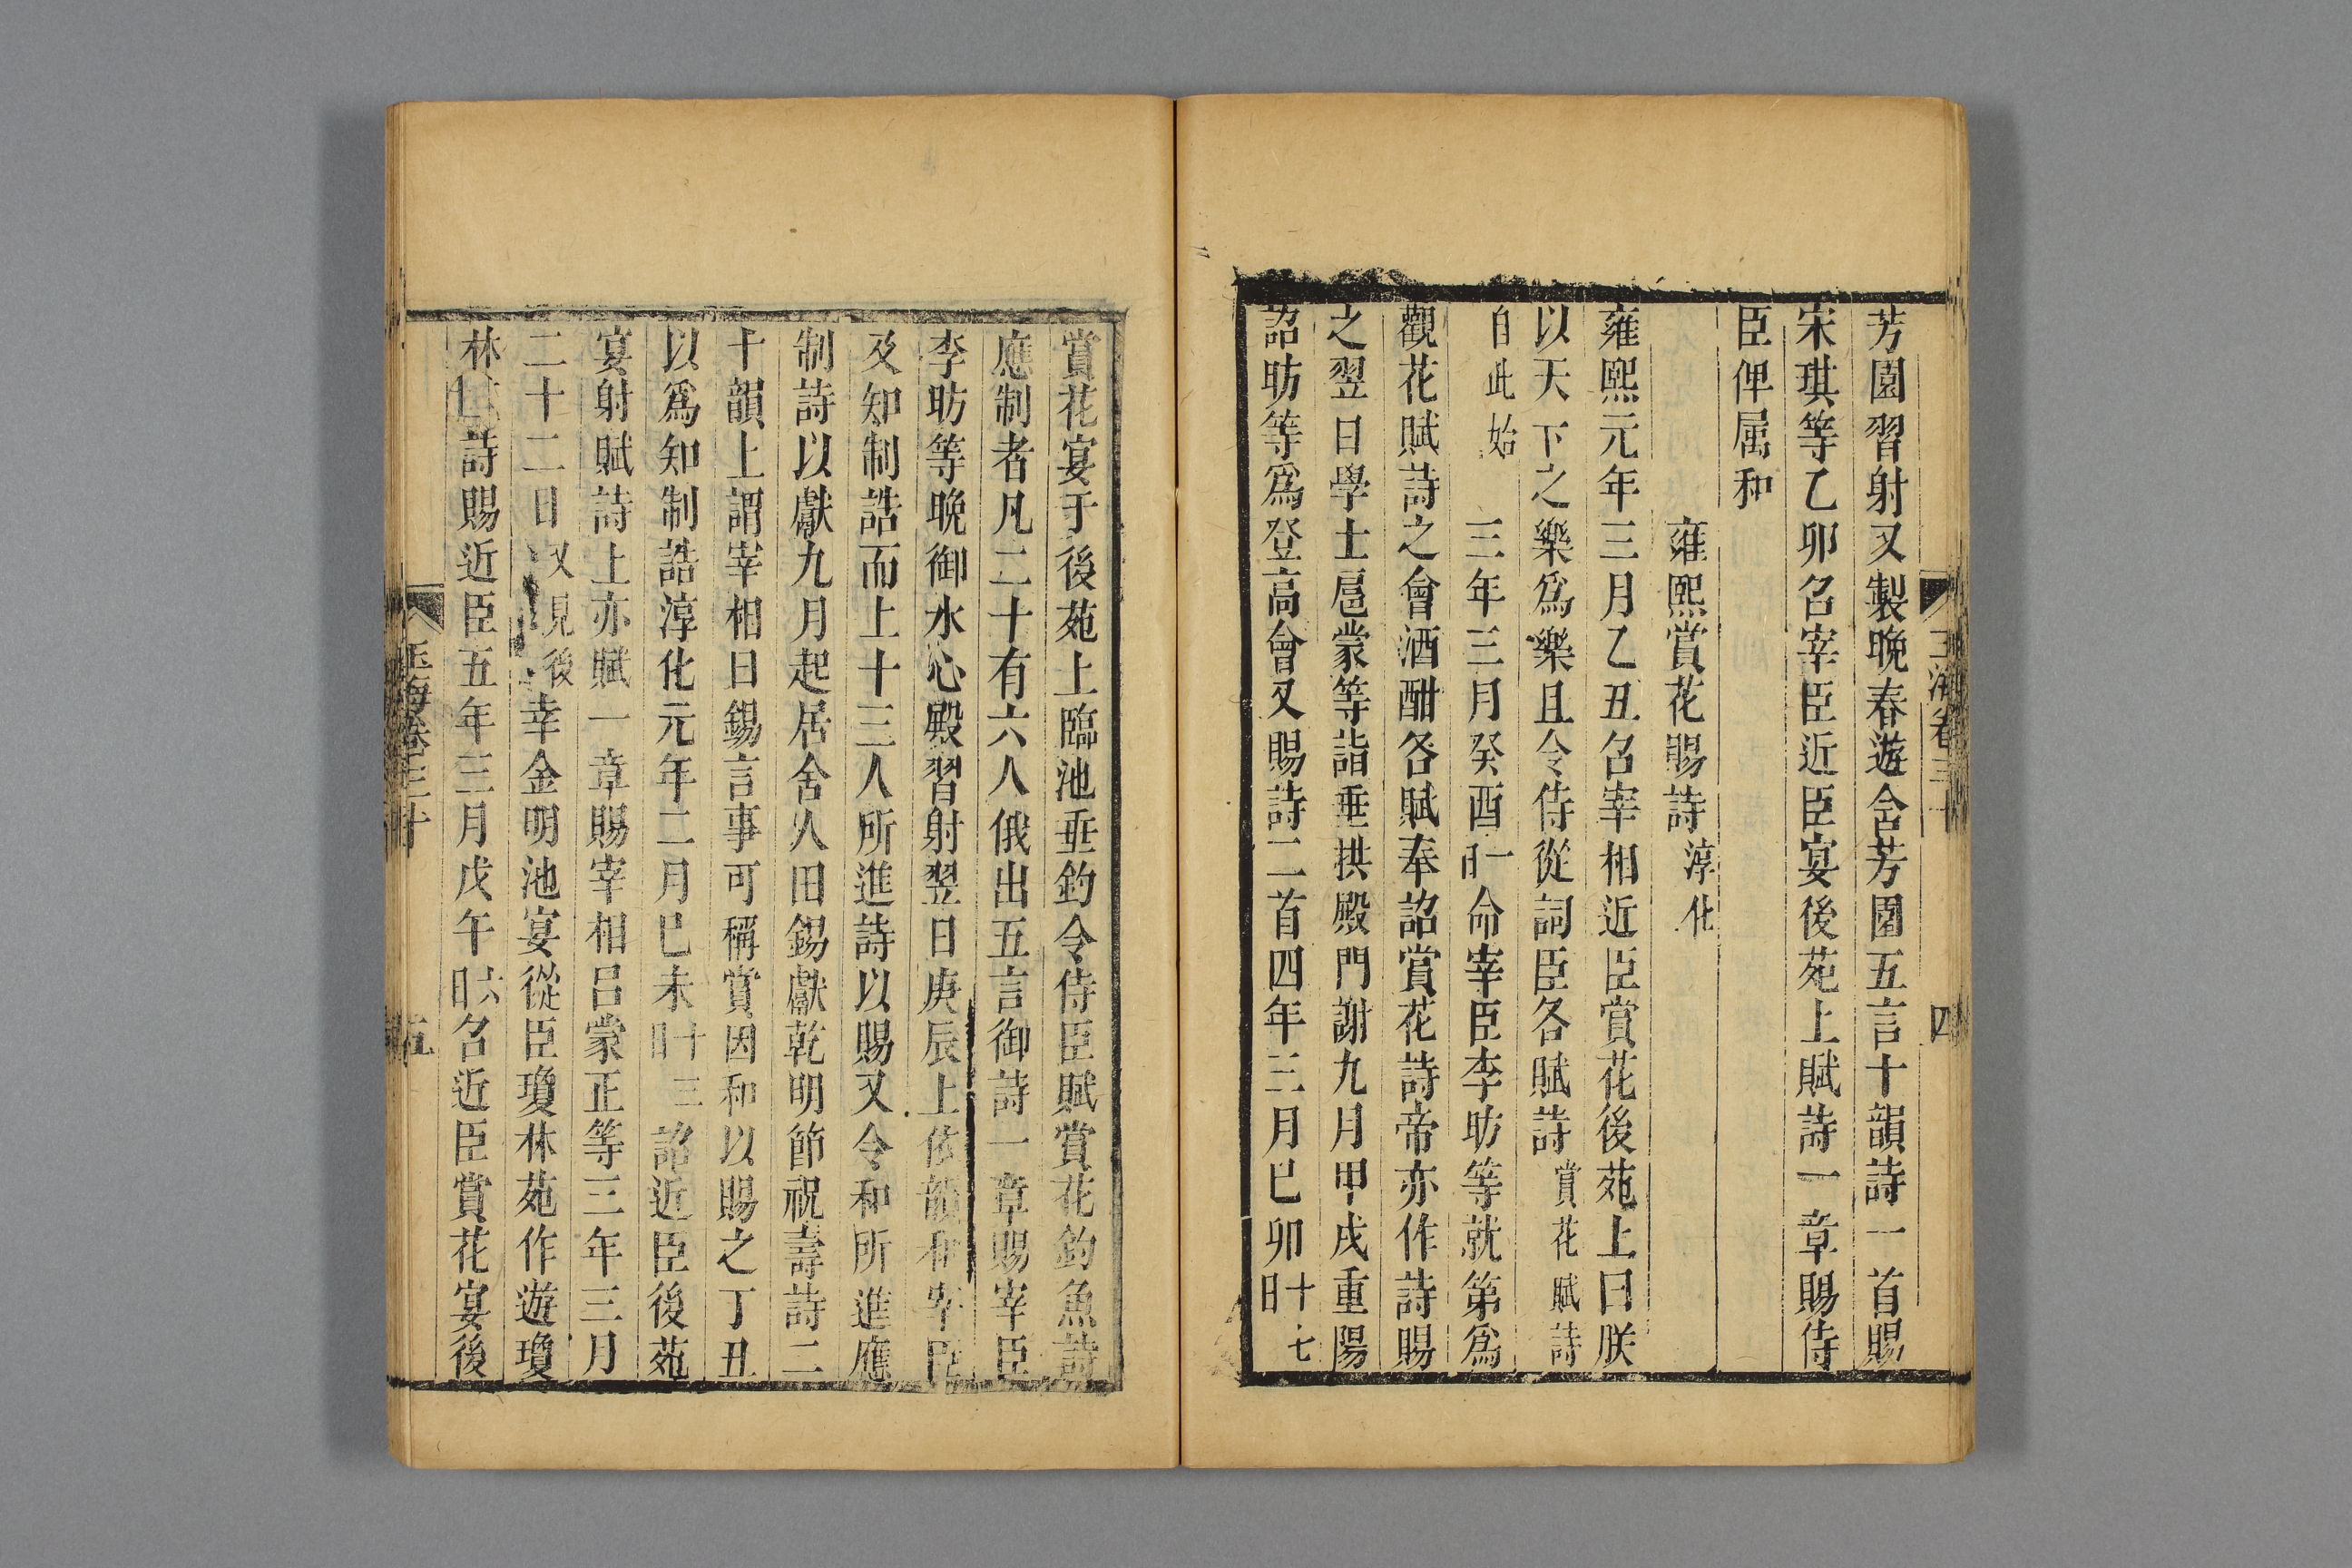 玉海卷三十
四
芳園習射又製晚春遊含芳園五言十韻詩一首賜
宋琪等乙卯召宰臣近臣宴後苑上賦詩一章賜侍
臣俾属和
雍熙賞花賜詩淳化
雍熙元年三月乙丑召宰相近臣賞花後苑上曰朕
以天下之樂為樂且令侍從詞臣各賦詩賞花賦詩
自此始三年三月癸酉一日命宰臣李昉等就第為
觀花賦詩之會酒酣各賦奉詔賞花詩帝亦作詩賜
之翌日學士扈蒙等詣垂拱殿門謝九月甲戌重陽
詔昉等爲登高會又賜詩二首四年三月巳卯十七日
賞花宴于後苑上臨池垂釣令侍臣賦賞花釣魚詩
應制者凡二十有六人俄出五言御詩一章賜宰臣
李昉等晚御水心殿習射翌日庚辰上依韻和宰臣
及知制誥而上十三人所進詩以賜又令和所進應
制詩以獻九月起居舍人田錫獻乾明節祝壽詩二
十韻上謂宰相曰錫言事可稱賞因和以賜之丁丑
以爲知制誥淳化元年二月巳未十三日詔近臣後苑
宴射賦詩上亦賦一章賜宰相呂蒙正等三年三月
二十二日又見後幸金明池宴從臣瓊林苑作遊瓊
林詩賜近臣五年三月戊午六日召近臣賞花宴後
玉海卷三十
五